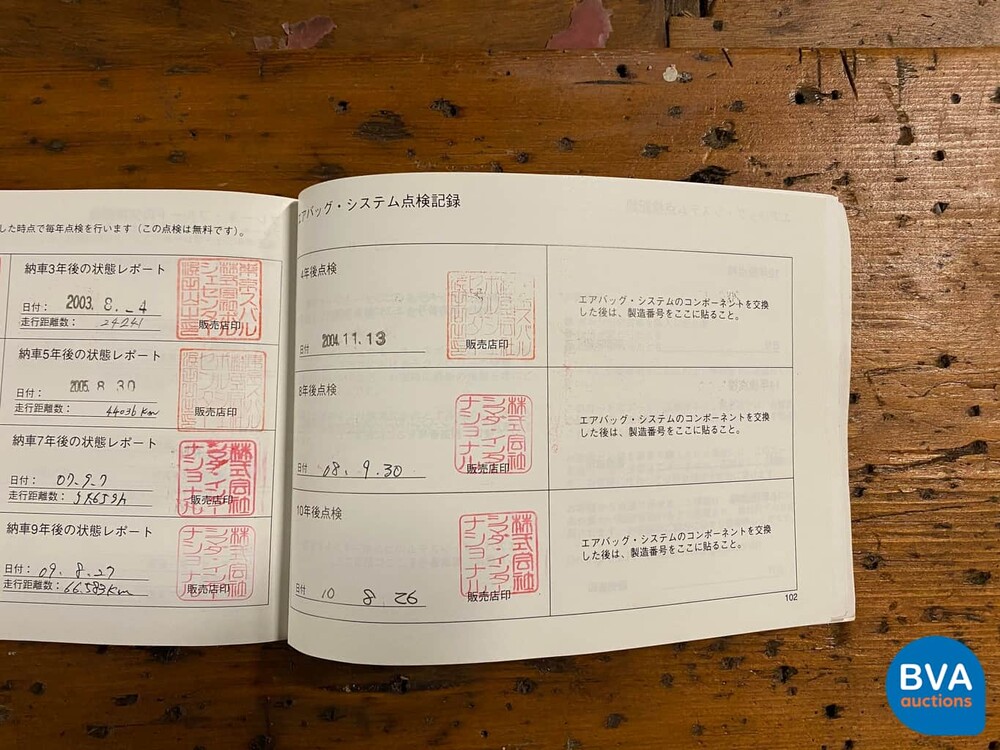 した時点で毎年点検を行います（この点検は無料です）。
納車3年後の状態レポート
日付： 2003. 8. -4
走行距離数： 24241
販売店印
納車5年後の状態レポート
日付： 2005. 8. 30
走行距離数： 44036 Km
販売店印
納車7年後の状態レポート
日付： 07. 9. 7
走行距離数：
株式会社
シマダ・インター
ナショナル
販売店印
納車9年後の状態レポート
日付： 09. 8. 27
走行距離数： 66.583Km
株式会社
シマダ・インター
ナショナル
販売店印
エアバッグ・システム点検記録
4年後点検
日付 2004.11.13
販売店印
エアバッグ・システムのコンポーネントを交換
した後は、製造番号をここに貼ること。
8年後点検
日付 08. 9.30
株式会社
シマダ・インター
ナショナル
販売店印
エアバッグ・システムのコンポーネントを交換
した後は、製造番号をここに貼ること。
10年後点検
日付 10 8 26
株式会社
シマダ・インター
ナショナル
販売店印
エアバッグ・システムのコンポーネントを交換
した後は、製造番号をここに貼ること。
102
BVA
auctions